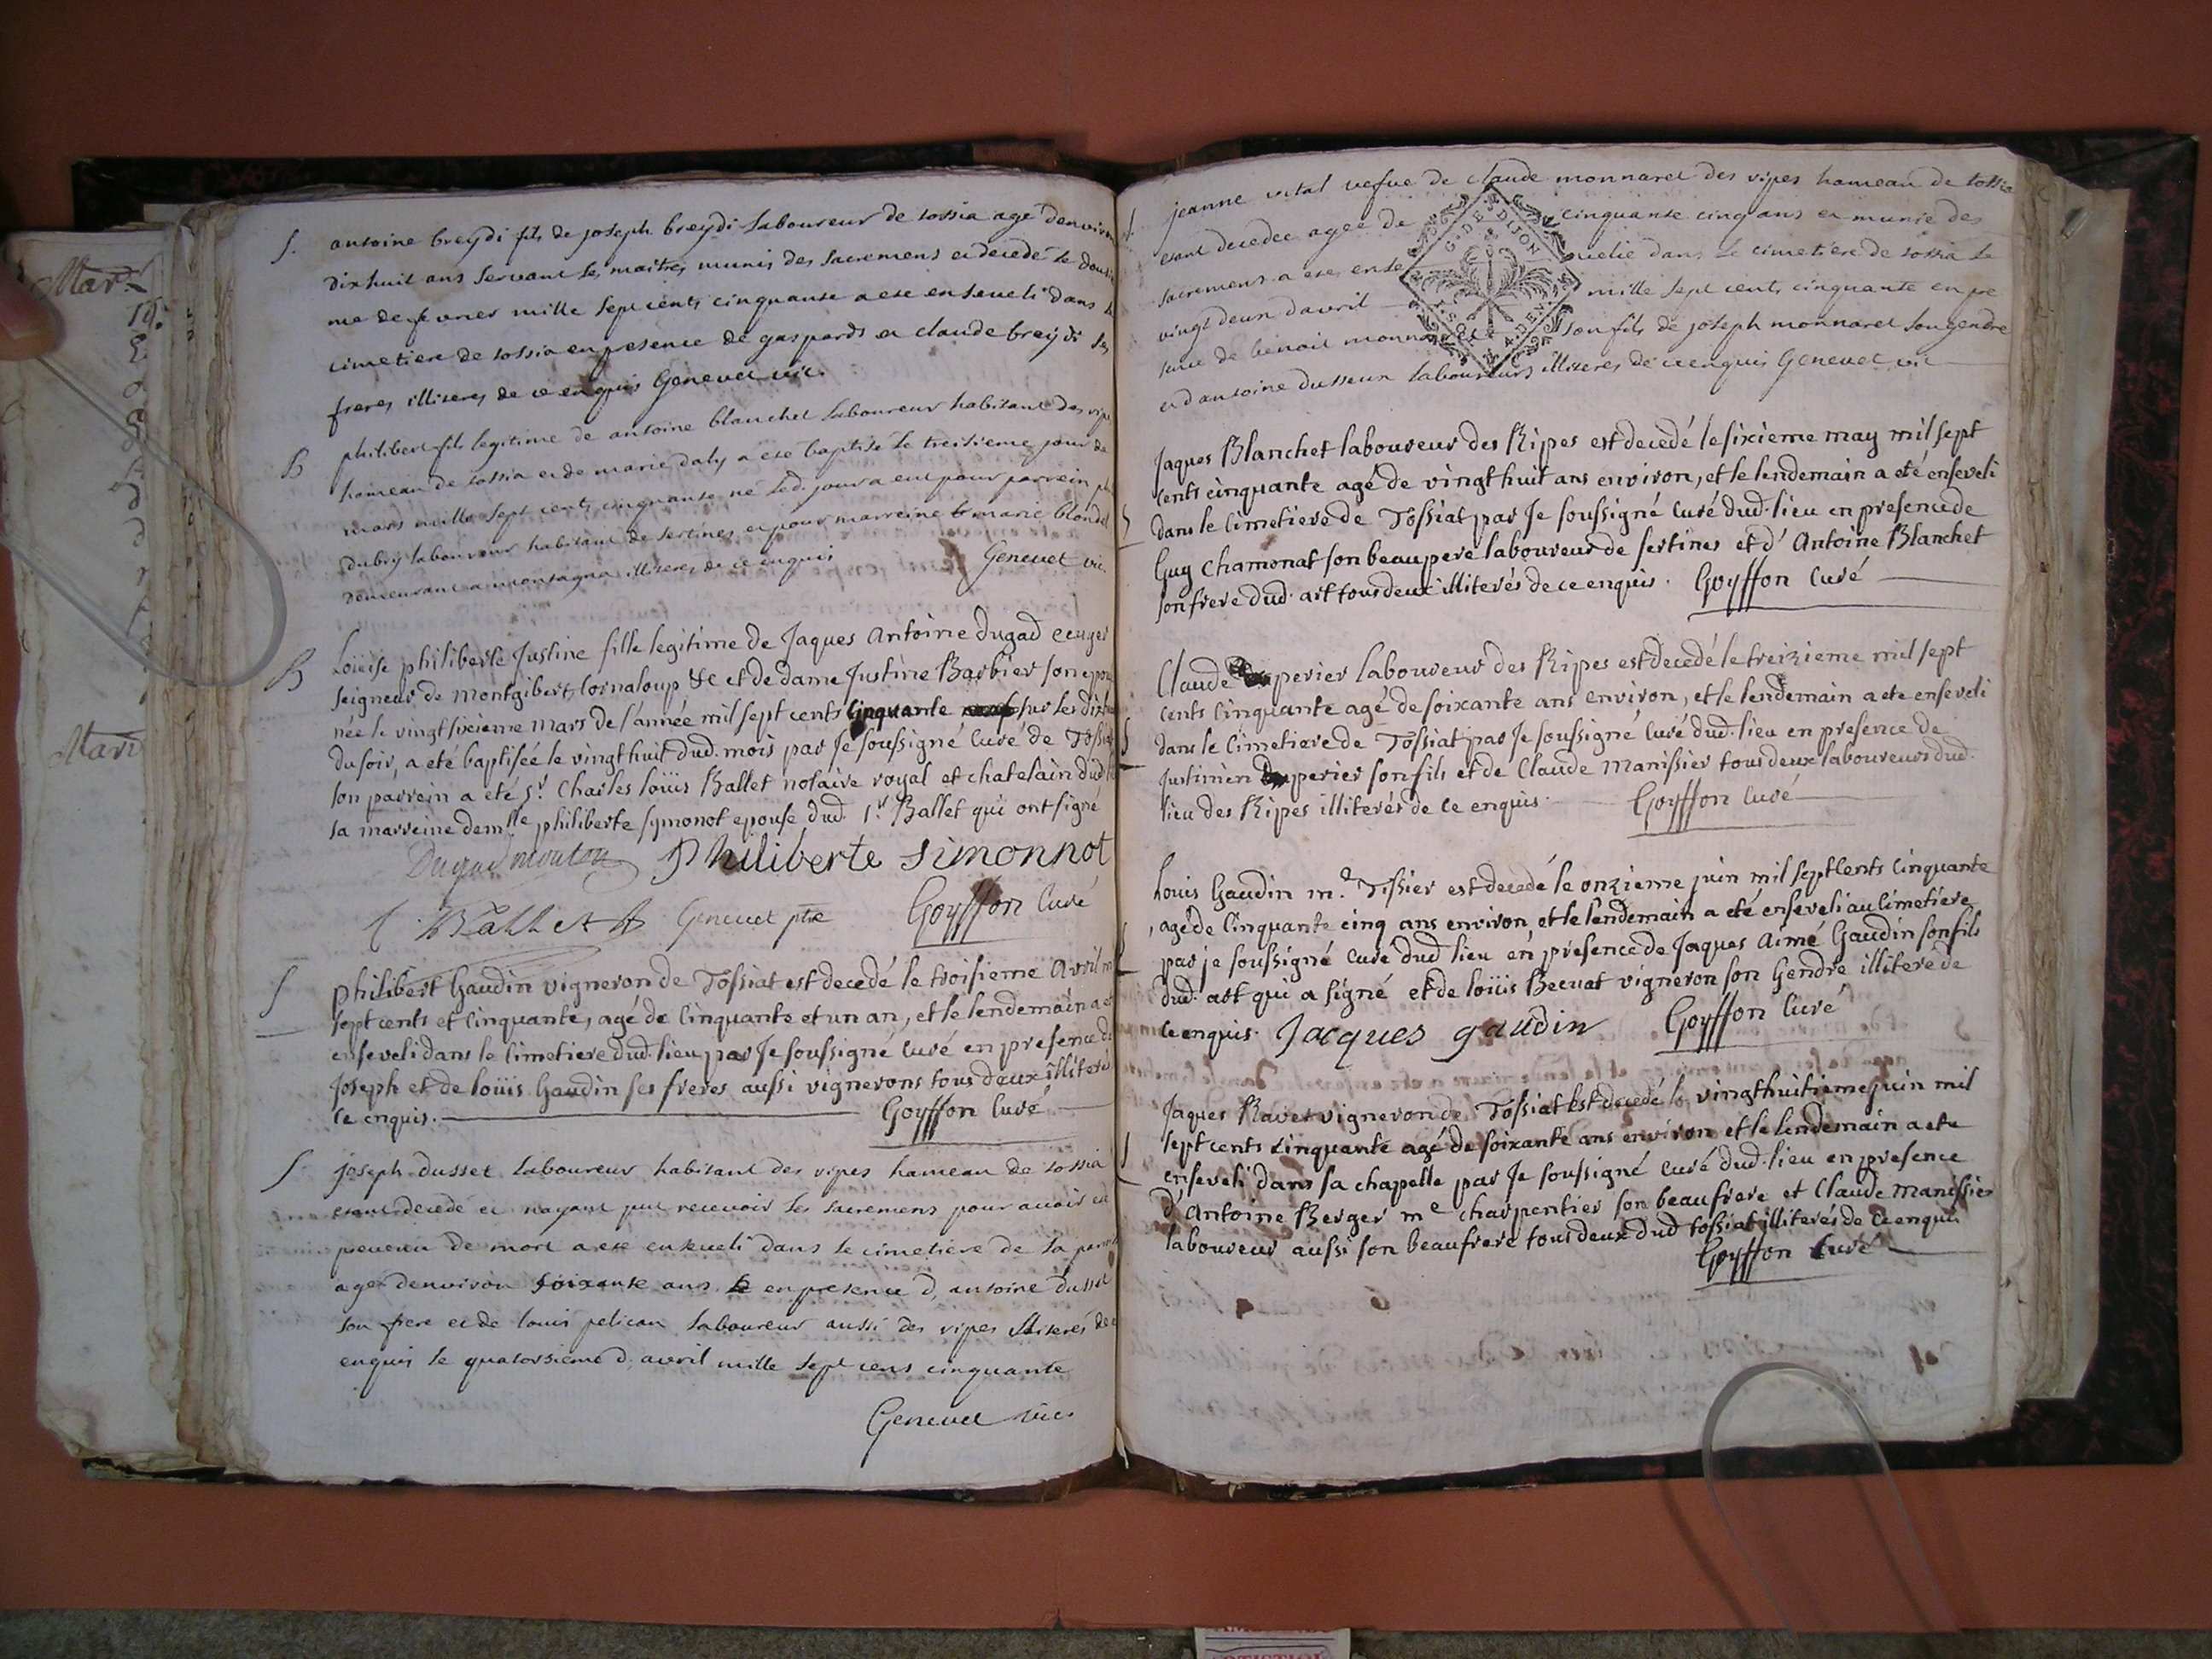 S. antoine breydi fils de joseph breydi laboureur de tossia agé denviron
dixhuit ans servant les maitres munis des sacremens et decedé le dousie
me de fevrier mille sept cents cinquante a ete enseveli dans le
cimetiere de tossia en presence de gaspards et claude breydi ses
freres illiteres de ce enquis Genevet vic.
B philibert fils legitime de antoine blanchet laboureur habitant des ripes
hameau de tossia et de marie daly a ete baptisé le treisieme jour de
mars mille sept cents cinquante né led. jour a eut pour parrein
Dubry laboureur habitant de sertines et pour marreine marie blondel
demeurant a montagna illiteres de ce enquis Genevet vic.
B Loüise philiberte Justine fille legitime de Jaques Antoine dugad ecuyer
seigneur de montgibert, Cornaloup &c et de dame Justine Barbier son epouse
née le vingtsixieme mars de l'année mil sept cents cinquante sur les dix he
du soir, a eté baptisée le vingthuit dud. mois par Je soussigné Curé de Tossiat
son parrein a eté Sr. Charles loüis Ballet notaire royal et chatelain dud
sa marreine demlle philiberte symonot epouse dud. Sr. Ballet qui ont signé
Dugad mouton Philiberte simonnot
C. Ballet Genevet ptre Goyffon Curé
S philibert Gaudin vigneron de Tossiat est decedé le troisieme Avril m
sept cents et Cinquante, agé de Cinquante et un an, et le lendemain a et
enseveli dans le Cimetiere dud. lieu par Je soussigné Curé en presence d
Joseph et de loüis Gaudin ses freres aussi vignerons tous deux illiteré
ce enquis. Goyffon Curé
S joseph dusset laboureur habitant des ripes hameau de tossia
etant decedé et nayant put recevoir les sacremens pour avoir eté
prevenu de mort a ete enseveli dans le cimetiere de la paroi
agé denviron soixante ans en presence d, antoine dusset
son frere et de louis pelican laboureur aussi des ripes illiterés de
enquis le quatorsieme d, avril mille sept cens cinquante
Genevet vic.
Mar.
Mari
S. jeanne vital vefue de claude monnaret des ripes hameau de tossia
etant decedee agee de cinquante cinq ans et munie des
sacremens a ete ense uelie dans le cimetiere de tossia le
vingt deux davril mille sept cents cinquante en pre
sence de benoit monnaret son fils de joseph monnaret son gendre
et dantoine dusseur laboureurs illiteres de ce enquis Genevet vic
G. D. DE DIJON
Jaques Blanchet laboureur des Ripes est decedé le sixieme may mil sept
cents cinquante agé de vingthuit ans environ, et le lendemain a eté enseveli
S dans le Cimetiere de Tossiat par Je soussigné Curé dud. lieu en presence de
Guy Chamonat son beaupere laboureur de sertines et d'Antoine Blanchet
son frere dud. art tous deux illiterés de ce enquis. Goyffon Curé
Claude perier laboureur des Ripes est decedé le treizieme mil sept
cents Cinquante agé de soixante ans environ, et le lendemain a ete enseveli
S dans le Cimetiere de Tossiat par Je soussigné Curé dud. lieu en presence de
Justinien perier son fils et de Claude manissier tous deux laboureurs dud.
lieu des Ripes illiterés de Ce enquis. Goyffon Curé
Louis Gaudin me Tissier est decedé le onzieme juin mil sept Cents Cinquante
S , agé de Cinquante cinq ans environ, et le lendemain a eté enseveli au Cimetiere
par je soussigné Curé dud lieu en presence de Jaques Aimé Gaudin son fils
dud. art qui a signé et de loüis Becuat vigneron son Gendre illiteré de
ce enquis. Jacques gaudin Goyffon Curé
Jaques Ravet vigneron de Tossiat Est decedé le vingthuitieme juin mil
S sept cents Cinquante agé de soixante ans environ et le lendemain a ete
enseveli dans sa chapelle par Je soussigné Curé dud. lieu en presence
d'Antoine Berger me charpentier son beaufrere et Claude manissier
laboureur aussi son beaufrere tous deux dud tossiat illiterés de Ce enquis
Goyffon Curé